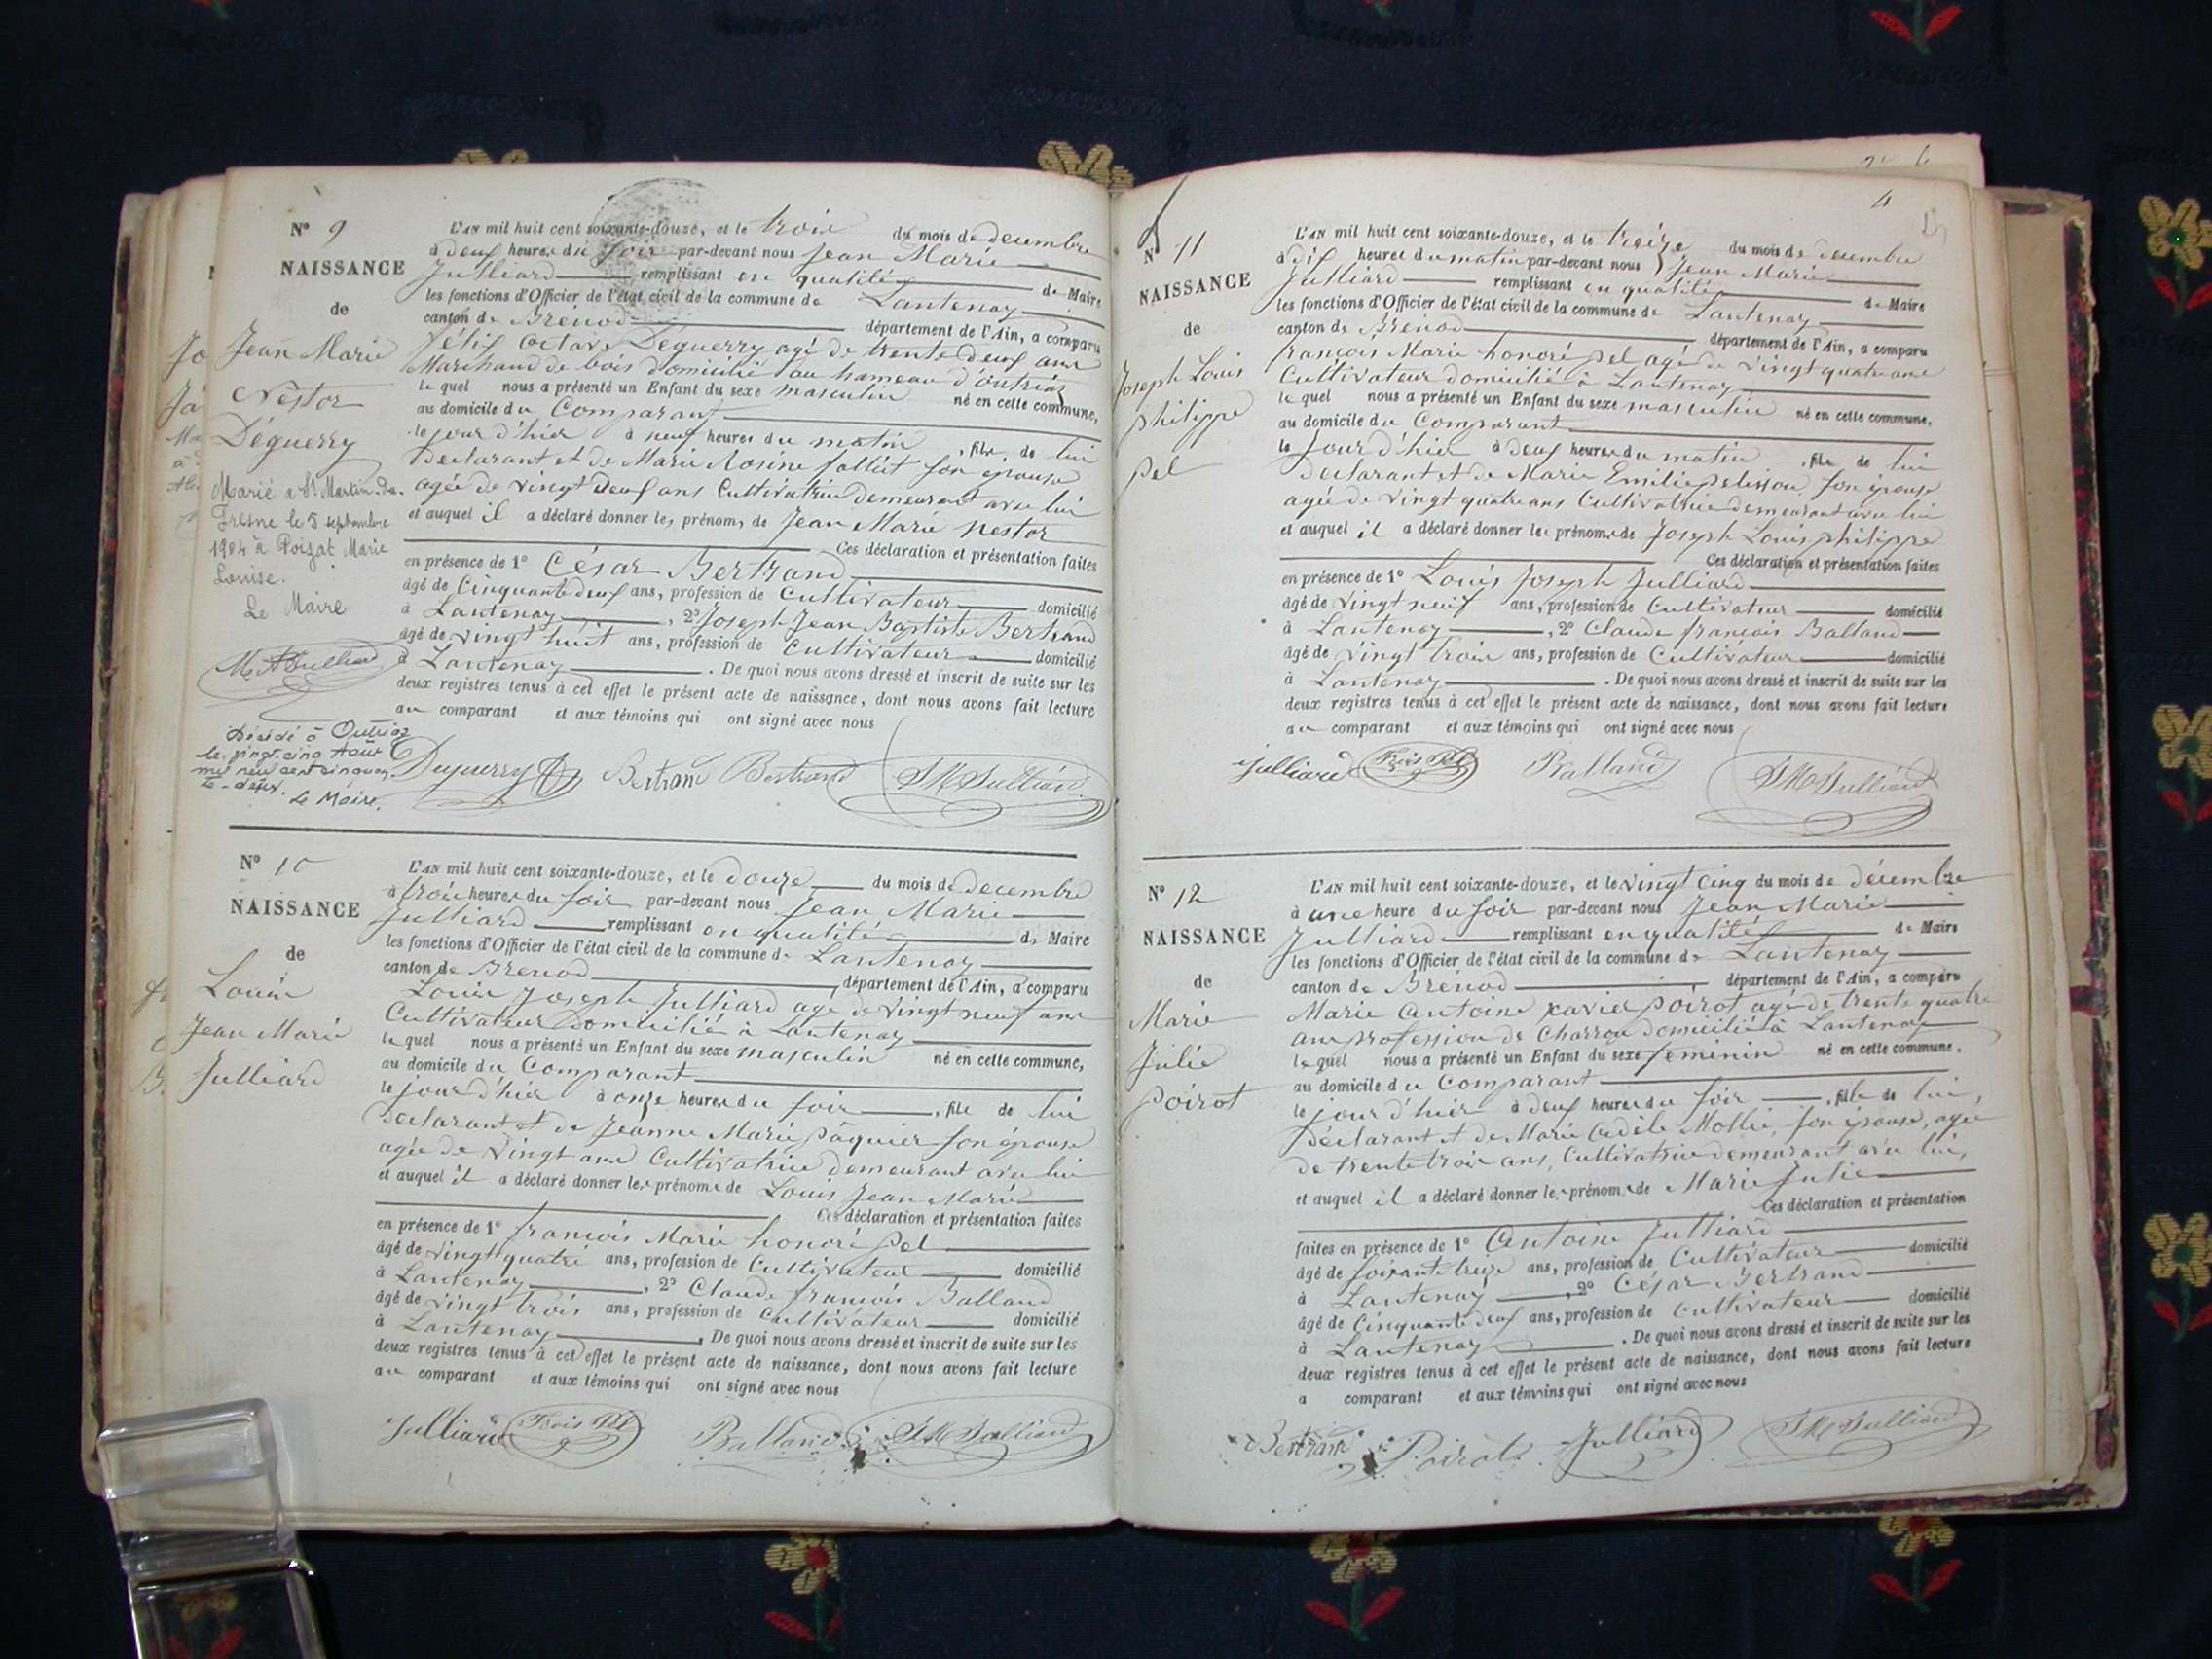 N° 9
NAISSANCE
de
Jean Marie
Nestor
Déguerry
Marié à St Martin-du-
Fresne le 5 septembre
1904 à Poizat Marie
Louise.
Le Maire
Décédé à Outriaz
le vingt-cinq Août
mil neuf cent cinquan-
te-deux.
Le Maire.
L'AN mil huit cent soixante-douze, et le trois du mois de decembre
à deux heures du soir par-devant nous Jean Marie
Julliard remplissant en qualité de Maire
les fonctions d'Officier de l'état civil de la commune de Lantenay
canton de Brenod département de l'Ain, a comparu
félix Octave Déguerry agé de trente deux ans
Marchand de bois domicilié au hameau d'outriaz
le quel nous a présenté un Enfant du sexe masculin né en cette commune,
au domicile du Comparant
le jour d'hier à neuf heures du matin, fils de lui
Déclarant et de Marie Rosine son épouse
agée de vingt deux ans Cultivatrice demeurant avec lui
et auquel il a déclaré donner les prénoms de Jean Marie nestor
Ces déclaration et présentation faites
en présence de 1° César Bertrand
âgé de Cinquante deux ans, profession de Cultivateur domicilié
à Lantenay, 2° Joseph Jean Baptiste Bertrand
âgé de vingt huit ans, profession de Cultivateur domicilié
à Lantenay. De quoi nous avons dressé et inscrit de suite sur les
deux registres tenus à cet effet le présent acte de naissance, dont nous avons fait lecture
au comparant et aux témoins qui ont signé avec nous
Deguerry Bertrand Bertrand JM Julliard
N° 10
NAISSANCE
de
Louis
Jean Marie
Julliard
L'AN mil huit cent soixante-douze, et le douze du mois de decembre
à trois heures du soir par-devant nous Jean Marie
Julliard remplissant en qualité de Maire
les fonctions d'Officier de l'état civil de la commune de Lantenay
canton de Brenod département de l'Ain, a comparu
Louis Joseph Julliard agé de vingt neuf ans
Cultivateur domicilié à Lantenay
le quel nous a présenté un Enfant du sexe masculin né en cette commune,
au domicile du Comparant
le jour d'hier à onze heures du soir, fils de lui
Déclarant et de Jeanne Marie pâquier son épouse
agée de vingt ans Cultivatrice demeurant avec lui
et auquel il a déclaré donner les prénoms de Louis Jean Marie
Ces déclaration et présentation faites
en présence de 1° françois Marie honoré pel
âgé de vingt quatre ans, profession de Cultivateur domicilié
à Lantenay, 2° Claude françois Balland
âgé de vingt trois ans, profession de Cultivateur domicilié
à Lantenay. De quoi nous avons dressé et inscrit de suite sur les
deux registres tenus à cet effet le présent acte de naissance, dont nous avons fait lecture
au comparant et aux témoins qui ont signé avec nous
Julliard Balland JM Julliard
4
N° 11
NAISSANCE
de
Joseph Louis
philippe
pel
L'AN mil huit cent soixante-douze, et le treize du mois de decembre
à dix heures du matin par-devant nous Jean Marie
Julliard remplissant en qualité de Maire
les fonctions d'Officier de l'état civil de la commune de Lantenay
canton de Brenod département de l'Ain, a comparu
françois Marie honoré pel agé de vingt quatre ans
Cultivateur domicilié à Lantenay
le quel nous a présenté un Enfant du sexe masculin né en cette commune,
au domicile du Comparant
le jour d'hier à deux heures du matin, fils de lui
Déclarant et de Marie Emilie pelisson son épouse
agée de vingt quatre ans Cultivatrice demeurant avec lui
et auquel il a déclaré donner les prénoms de Joseph Louis philippe
Ces déclaration et présentation faites
en présence de 1° Louis Joseph Julliard
âgé de vingt neuf ans, profession de Cultivateur domicilié
à Lantenay, 2° Claude françois Balland
âgé de vingt trois ans, profession de Cultivateur domicilié
à Lantenay. De quoi nous avons dressé et inscrit de suite sur les
deux registres tenus à cet effet le présent acte de naissance, dont nous avons fait lecture
au comparant et aux témoins qui ont signé avec nous
Julliard Balland JM Julliard
N° 12
NAISSANCE
de
Marie
Julie
poirot
L'AN mil huit cent soixante-douze, et le vingt cinq du mois de décembre
à une heure du soir par-devant nous Jean Marie
Julliard remplissant en qualité de Maire
les fonctions d'Officier de l'état civil de la commune de Lantenay
canton de Brénod département de l'Ain, a comparu
Marie Antoine xavier poirot agé de trente quatre
ans profession de Charron domicilié à Lantenay
le quel nous a présenté un Enfant du sexe feminin né en cette commune,
au domicile du Comparant
le jour d'hier à deux heures du soir, fille de lui,
Déclarant et de Marie Adèle Mollie, son épouse, agée
de trente trois ans, Cultivatrice demeurant avec lui,
et auquel il a déclaré donner les prénoms de Marie Julie
Ces déclaration et présentation
faites en présence de 1° Antoine Julliard
âgé de soixante treize ans, profession de Cultivateur domicilié
à Lantenay, 2° César Bertrand
âgé de Cinquante deux ans, profession de Cultivateur domicilié
à Lantenay. De quoi nous avons dressé et inscrit de suite sur les
deux registres tenus à cet effet le présent acte de naissance, dont nous avons fait lecture
a comparant et aux témoins qui ont signé avec nous
Bertrand Poirot Julliard JM Julliard